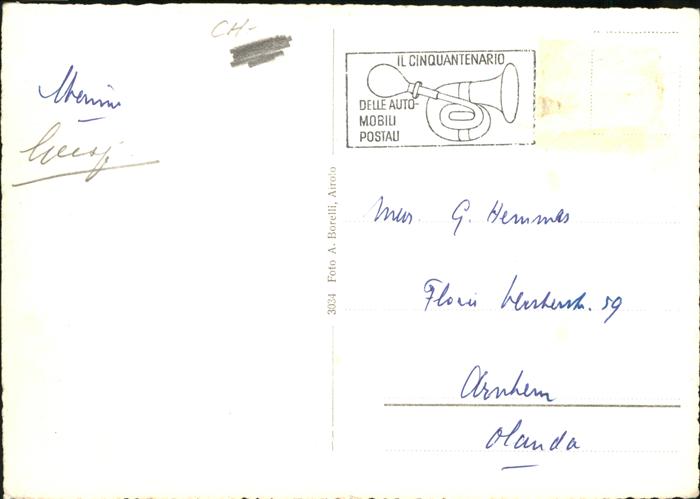 CH-
IL CINQUANTENARIO
DELLE AUTO-
MOBILI
POSTALI
3034 Foto A. Borelli, Airolo
G. Hemmes
Floris Versterstr. 59
Arnhem
Olanda